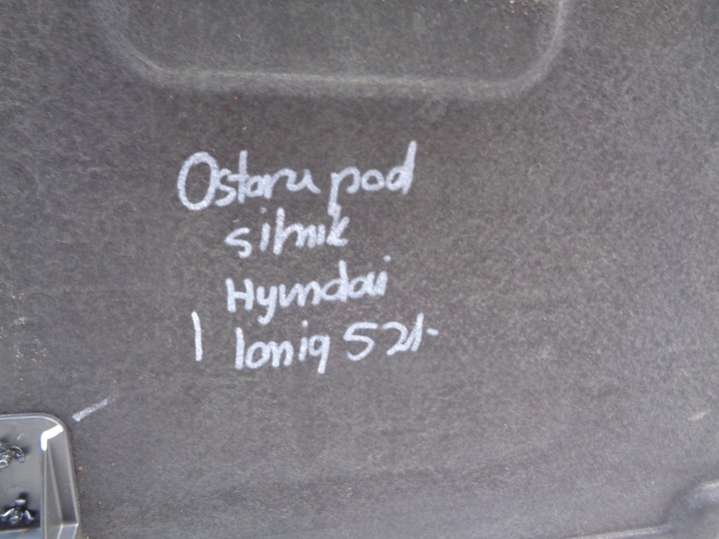 Osłona pod
silnik
Hyundai
Ioniq 5 21-